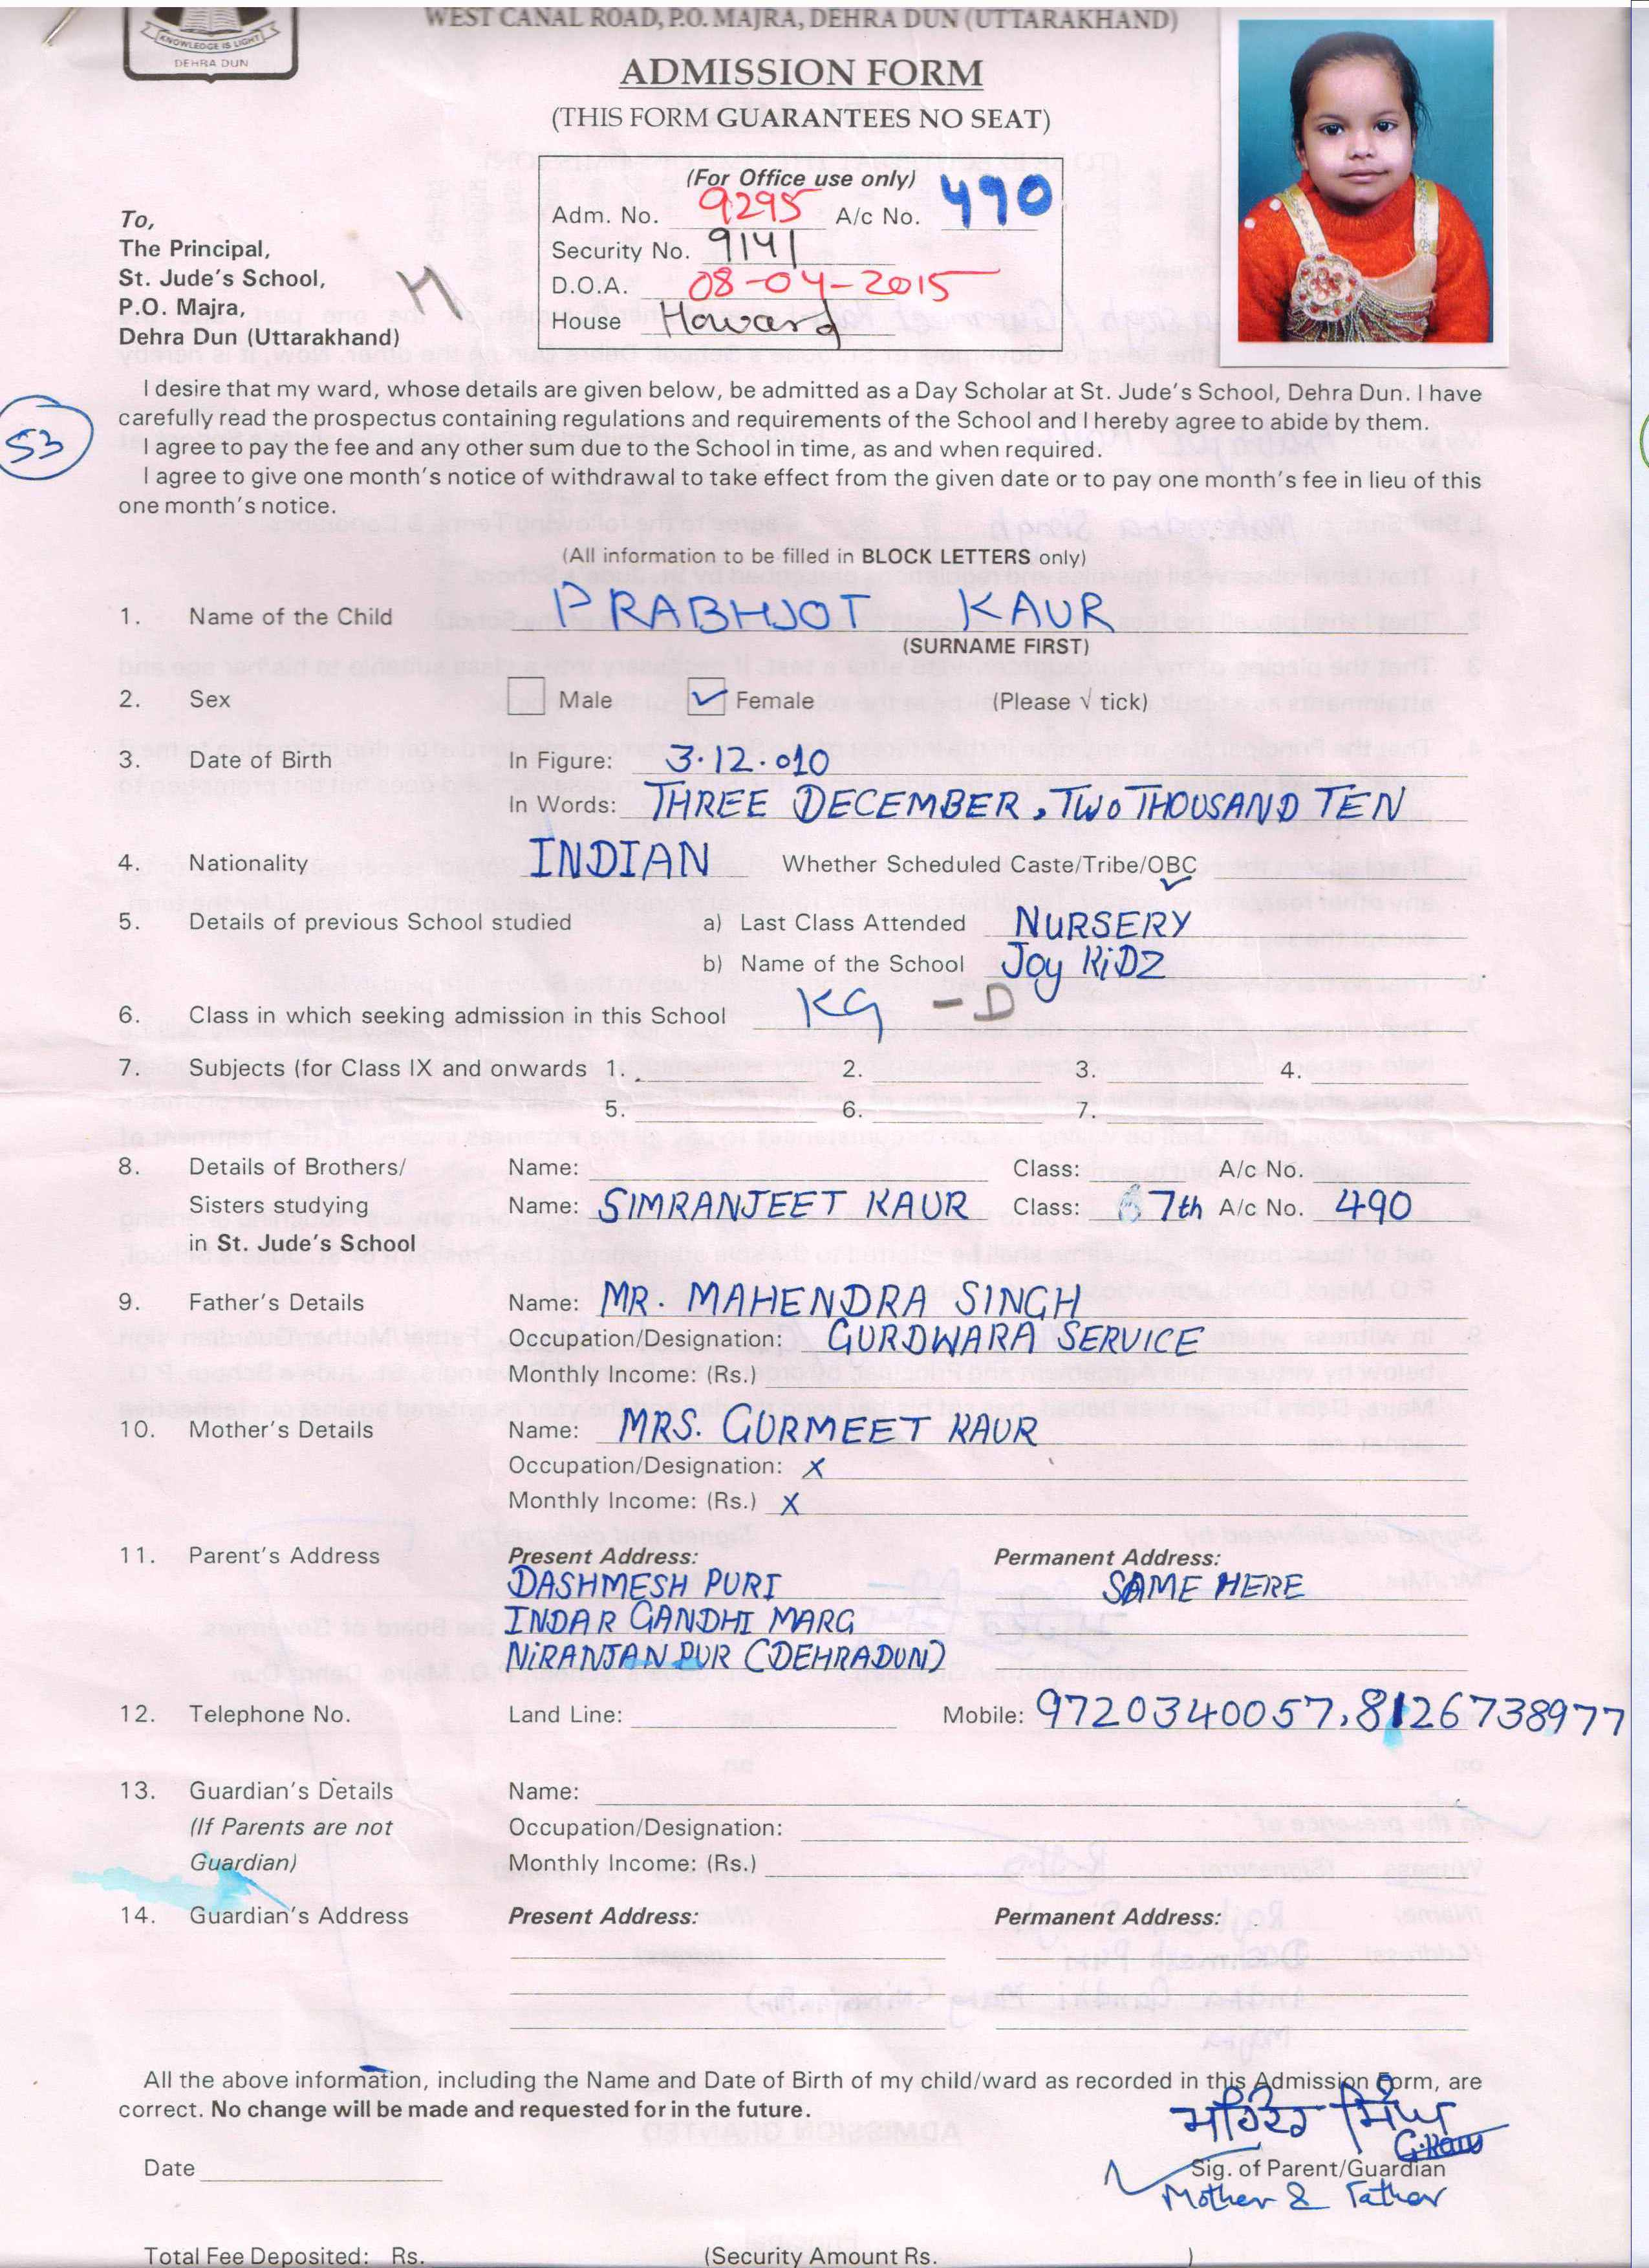 WEST CANAL ROAD, P.O. MAJRA, DEHRA DUN (UTTARAKHAND)
KNOWLEDGE IS LIGHT
DEHRA DUN
ADMISSION FORM
(THIS FORM GUARANTEES NO SEAT)
(For Office use only)
Adm. No. 9295 A/c No. 490
Security No. 9141
D.O.A. 08-04-2015
House Howard
To,
The Principal,
St. Jude's School,
P.O. Majra,
Dehra Dun (Uttarakhand)
I desire that my ward, whose details are given below, be admitted as a Day Scholar at St. Jude's School, Dehra Dun. I have
carefully read the prospectus containing regulations and requirements of the School and I hereby agree to abide by them.
53
I agree to pay the fee and any other sum due to the School in time, as and when required.
I agree to give one month's notice of withdrawal to take effect from the given date or to pay one month's fee in lieu of this
one month's notice.
(All information to be filled in BLOCK LETTERS only)
1. Name of the Child PRABHJOT KAUR
(SURNAME FIRST)
2. Sex Male ✓ Female (Please √ tick)
3. Date of Birth In Figure: 3.12.010
In Words: THREE DECEMBER, TWO THOUSAND TEN
4. Nationality INDIAN Whether Scheduled Caste/Tribe/OBC ✓
5. Details of previous School studied a) Last Class Attended NURSERY
b) Name of the School Joy KiDZ
6. Class in which seeking admission in this School KG - D
7. Subjects (for Class IX and onwards 1. 2. 3. 4.
5. 6. 7.
8. Details of Brothers/ Name: Class: A/c No.
Sisters studying Name: SIMRANJEET KAUR Class: 7th A/c No. 490
in St. Jude's School
9. Father's Details Name: MR. MAHENDRA SINGH
Occupation/Designation: GURDWARA SERVICE
Monthly Income: (Rs.)
10. Mother's Details Name: MRS. GURMEET KAUR
Occupation/Designation: X
Monthly Income: (Rs.) X
11. Parent's Address Present Address: Permanent Address:
DASHMESH PURI SAME HERE
INDAR GANDHI MARG
NiRANJAN PUR (DEHRADUN)
12. Telephone No. Land Line: Mobile: 9720340057, 8126738977
13. Guardian's Details Name:
(If Parents are not Occupation/Designation:
Guardian) Monthly Income: (Rs.)
14. Guardian's Address Present Address: Permanent Address:
All the above information, including the Name and Date of Birth of my child/ward as recorded in this Admission Form, are
correct. No change will be made and requested for in the future.
ਸਿੰਘ
G.Kaur
Date Sig. of Parent/Guardian
Mother & Father
Total Fee Deposited: Rs. (Security Amount Rs. )